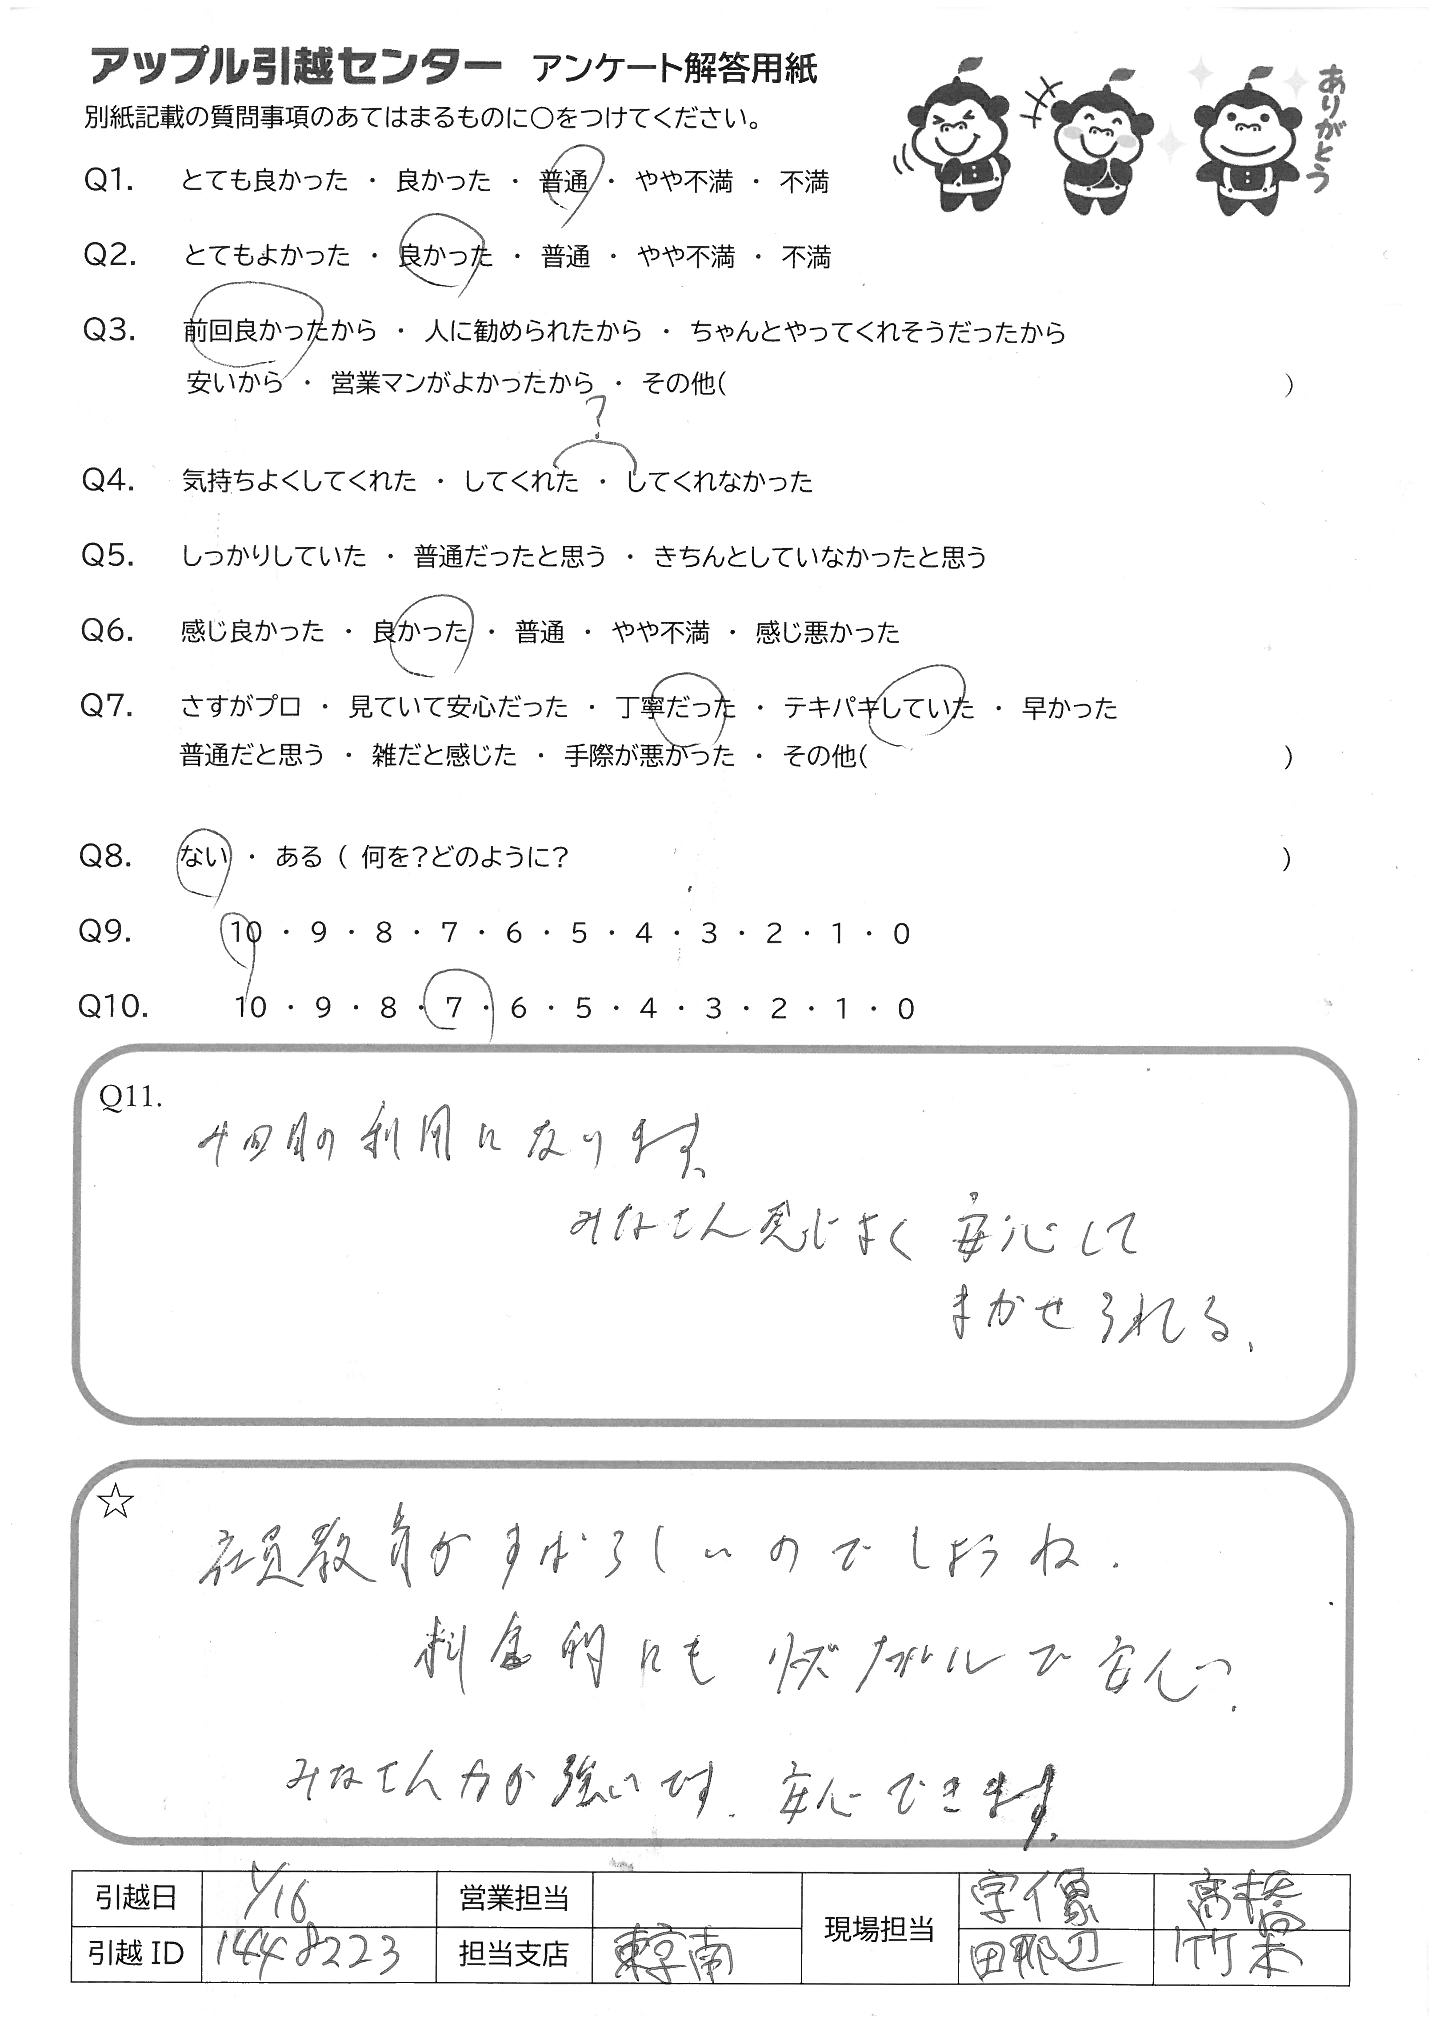 アップル引越センター アンケート解答用紙
別紙記載の質問事項のあてはまるものに○をつけてください。
ありがとう
Q1. とても良かった ・ 良かった ・ 普通 ・ やや不満 ・ 不満
Q2. とてもよかった ・ 良かった ・ 普通 ・ やや不満 ・ 不満
Q3. 前回良かったから ・ 人に勧められたから ・ ちゃんとやってくれそうだったから
安いから ・ 営業マンがよかったから ・ その他( )
?
Q4. 気持ちよくしてくれた ・ してくれた ・ してくれなかった
Q5. しっかりしていた ・ 普通だったと思う ・ きちんとしていなかったと思う
Q6. 感じ良かった ・ 良かった ・ 普通 ・ やや不満 ・ 感じ悪かった
Q7. さすがプロ ・ 見ていて安心だった ・ 丁寧だった ・ テキパキしていた ・ 早かった
普通だと思う ・ 雑だと感じた ・ 手際が悪かった ・ その他( )
Q8. ない ・ ある ( 何を?どのように? )
Q9. 10 ・ 9 ・ 8 ・ 7 ・ 6 ・ 5 ・ 4 ・ 3 ・ 2 ・ 1 ・ 0
Q10. 10 ・ 9 ・ 8 ・ 7 ・ 6 ・ 5 ・ 4 ・ 3 ・ 2 ・ 1 ・ 0
Q11.
4回目の利用になります。
みなさん感じよく 安心して
まかせられる。
☆
社員教育がすばらしいのでしょうね.
料金的にも リーズナブルで安心
みなさん力が強いです. 安心できます。
引越日 1/16 営業担当 現場担当 宗像 高橋
引越 ID 1448223 担当支店 東京南 田那辺 竹本